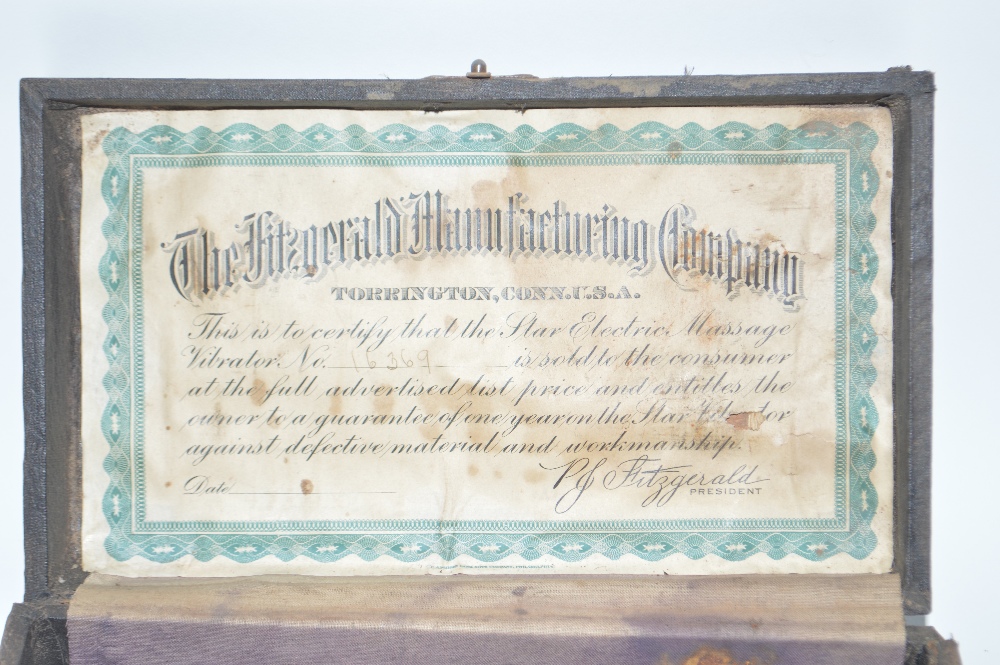 The Fitzgerald Manufacturing Company
TORRINGTON, CONN. U.S.A.
This is to certify that the Star Electric Massage
Vibrator. No. 16369 is sold to the consumer
at the full advertised list price and entitles the
owner to a guarantee of one year on the Star
against defective material and workmanship.
Date
P J Fitzgerald
PRESIDENT